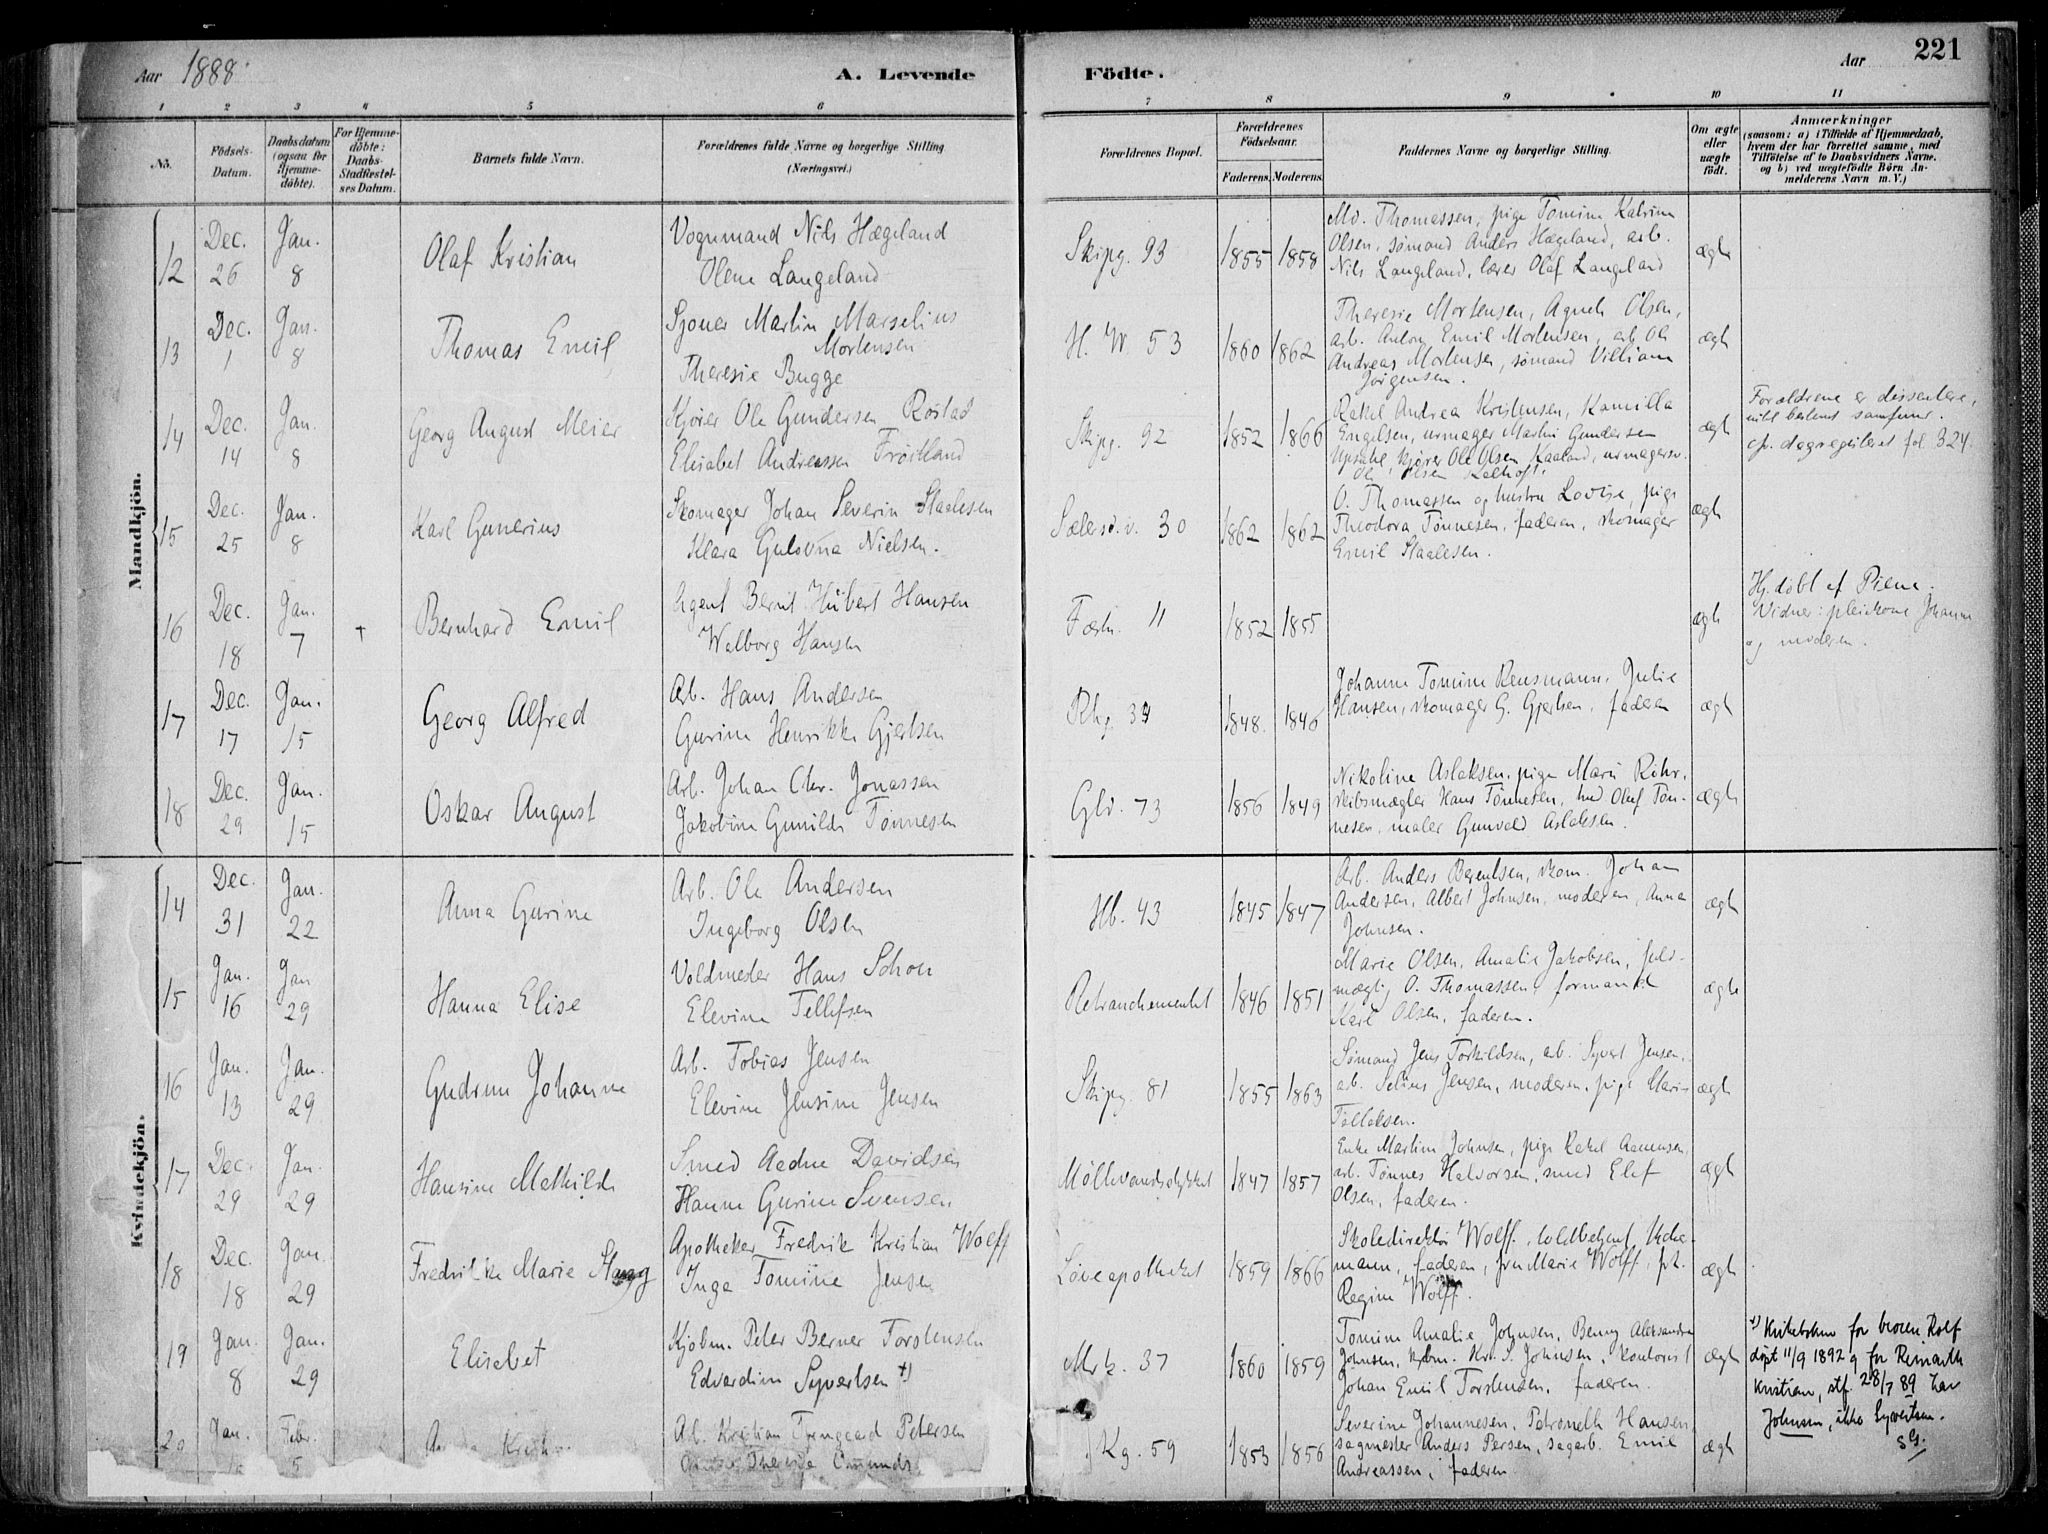 Aar 1888.
A. Levende Födte.
Aar
221
1 2 3 4 5 6 7 8 9 10 11
No.
Födsels-Datum.
Daabsdatum (ogsaa for Hjemme-döbte).
For Hjemme-döbte: Daabs-Stadfæstel-ses Datum.
Barnets fulde Navn.
Forældrenes fulde Navne og borgerlige Stilling (Næringsvei.)
Forældrenes Bopæl.
Forældrenes Födselsaar.
Faderens. Moderens.
Faddernes Navne og borgerlige Stilling.
Om ægte eller uægte födt.
Anmærkninger
(saasom: a) i Tilfælde af Hjemmedaab,
hvem der har forrettet samme, med
Tilföielse af to Daabsvidners Navne.
og b) ved uægtefödte Börn An-
melderens Navn m. V.)
Mandkjön.
12 Dec. 26 Jan. 8 Olaf Kristian
Vognmand Nils Hægeland
Olene Langeland
Skipg. 93 1855 1858
Md. Thomassen, pige Tomine Katrine
Olsen, sømand Anders Hægeland, arb.
Nils Langeland, lærer Olaf Langeland
ægte
13 Dec. 1 Jan. 8 Thomas Emil
Sjouer Martin Marselius
Mortensen
Theresie Bugge
H. W. 53 1860 1862
Theresie Mortensen, Agnete Olsen,
arb. Anton Emil Mortensen, arb. Ole
Andreas Mortensen, sømand Villiam
Jørgensen.
ægte
14 Dec. 14 Jan. 8 Georg August Meier
Kjører Ole Gundersen Røstad
Elisabet Andreassen Frøitland
Skipg. 92 1852 1866
Rakel Andrea Kristensen, Kamilla
Engelsen, urmager Martin Gundersen
Upsahl, kjører Ole Olsen Kaaland, urmagersv.
Ole Olsen
ægte
Forældrene er dissentere,
uden bestemt samfund.
cfr. dagregisteret fol. 324.
15 Dec. 25 Jan. 8 Karl Gunerius
Skomager Johan Severin Staalesen
Klara Gulovna Nielsen.
Sætersd. v. 30 1862 1862
O. Thomassen og hustru Lovise, pige
Theodora Tønnesen, faderen, skomager
Emil Staalesen.
ægte
16 Dec. 18 Jan. 7 + Bernhard Emil
Agent Bernt Hübert Hansen
Walborg Hansen
Fæstn. 11 1852 1855
ægte
Hj. døbt af Piene.
Vidner: pleiekone Johanne
og moderen.
17 Dec. 17 Jan. 15 Georg Alfred
Arb. Hans Andersen
Gurine Henrikke Gjertsen
Rhg. 34 1848. 1846
Johanne Tomine Reusmann, Julie
Hansen, skomager G. Gjertsen, faderen
ægte
18 Dec. 29 Jan. 15 Oskar August
Arb. Johan Chr. Jonassen
Jakobine Gunilde Tønnesen
Glv. 73 1856 1849
Nikoline Aslaksen, pige Marie Röhr,
skibsmægler Hans Tønnesen, Oluf Tøn-
nesen, maler Gunvald Aslaksen.
ægte
Kvindekjön.
14 Dec. 31 Jan. 22 Anna Gurine
Arb. Ole Andersen
Ingeborg Olsen
Hb. 43 1845 1847
Arb. Anders Berentsen, skom. Johan
Andersen, Albert Johnsen, moderen, Anna
Johnsen.
ægte
15 Jan. 16 Jan 29 Hanna Elise
Voldmester Hans Schou
Elevine Tellefsen
Retranchementet 1846 1851
Marie Olsen, Amalie Jakobsen, fuld-
mægtig O. Thomassen, formand
Karl Olsen, faderen.
ægte
16 Jan. 13 Jan. 29 Gudrun Johanne
Arb. Tobias Jensen
Elevine Jensine Jensen
Skipg. 81 1855 1863
Sømand Jens Torkildsen, arb. Syvert Jensen,
arb. Selius Jensen, moderen, pige Marie
Tallaksen.
ægte
17 Dec. 29 Jan. 29 Hansine Mathilde
Smed Aadne Davidsen
Hanne Gurine Svensen
Møllevandsstykket 1847 1857
Enke Martine Johnsen, pige Rakel Aanensen
arb. Tønnes Halvorsen, smed Elef
Olsen, faderen.
ægte
18 Dec. 18 Jan. 29 Fredrikke Marie Stang
Apotheker Fredrik Kristian Wolff
Inga Tomine Jensen
Løveapotheket 1859 1866
Skoledirektør Wolff, toldbetjent
mann, faderen, fru Marie Wolff, frk.
Regine Wolff.
ægte
19 Jan. 8 Jan. 29 Elisabet
Kjøbm. Peter Berner Torstensen
Edvardine Syvertsen +)
Mrk. 37 1860 1859
Tomine Amalie Johnsen, Benny Aleksandra
Johnsen, kjbm. Kr. S. Johnsen, kontorist
Johan Emil Torstensen, faderen.
ægte
+) Kirkeboken for broren Rolf
døpt 11/9 1892 og for Reinarth
Kristian, stf. 28/7 89 har
Johnsen, ikke Syvertsen.
SG.
20 Jan. Febr. 5
Arb. Kristian Petersen
Kg. 59 1853 1856
Severine Johannesen, Petronelle Hansen,
sagmester Anders Persen, sagarb. Emil
Andreassen, faderen.
ægte